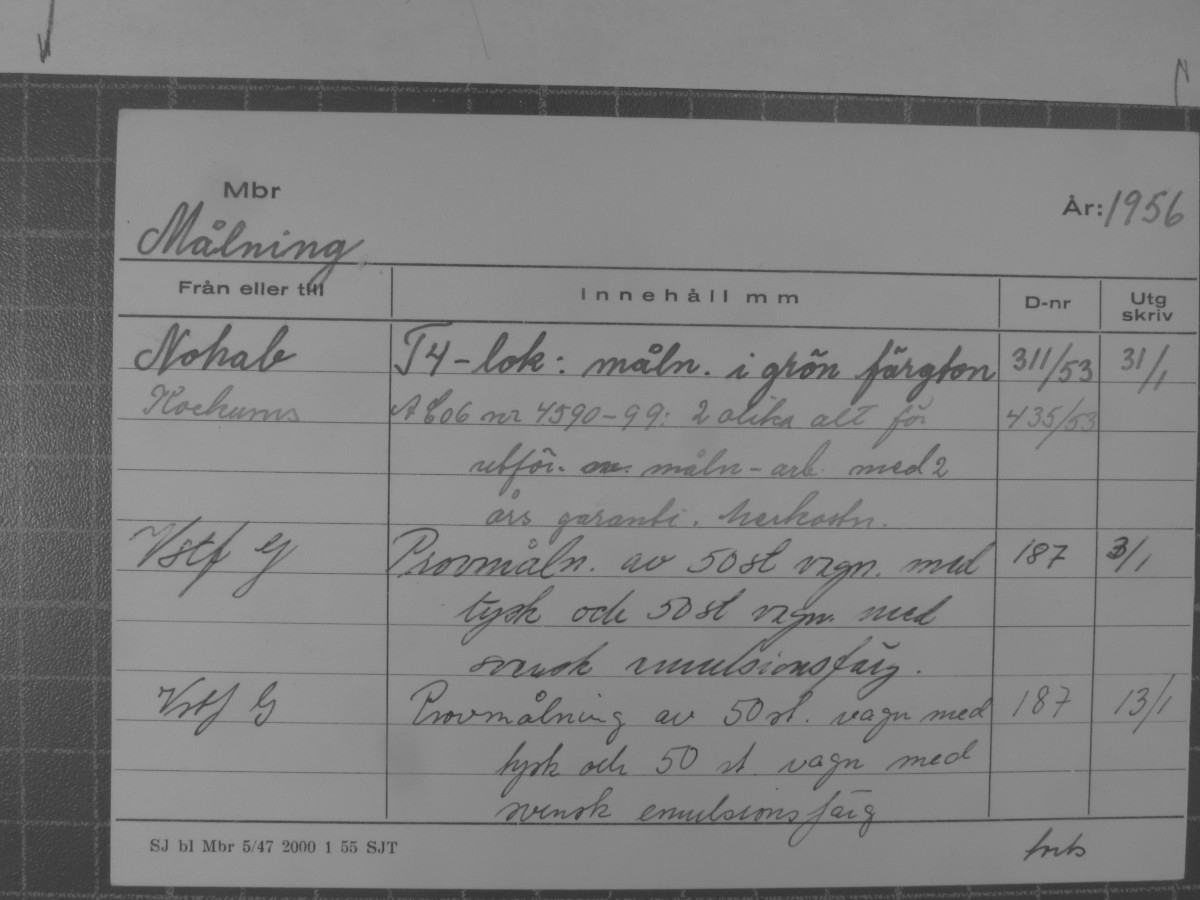 Mbr
År: 1956
Målning
Från eller till Innehåll mm D-nr Utg skriv
Nohab T4-lok: måln. i grön färgton 311/53 31/1
Kockums litt nr 4590-99: 2 olika alt för 435/53
utför. måln-arb. med 2
års garanti. Merkostn.
Vstf G Provmåln. av 50 st vagn. med 187 3/1
tysk och 50 st vagn. med
svensk emulsionsfärg.
Vstf G Provmålning av 50 st. vagn med 187 13/1
tysk och 50 st. vagn med
svensk emulsionsfärg
SJ bl Mbr 5/47 2000 1 55 SJT
forts